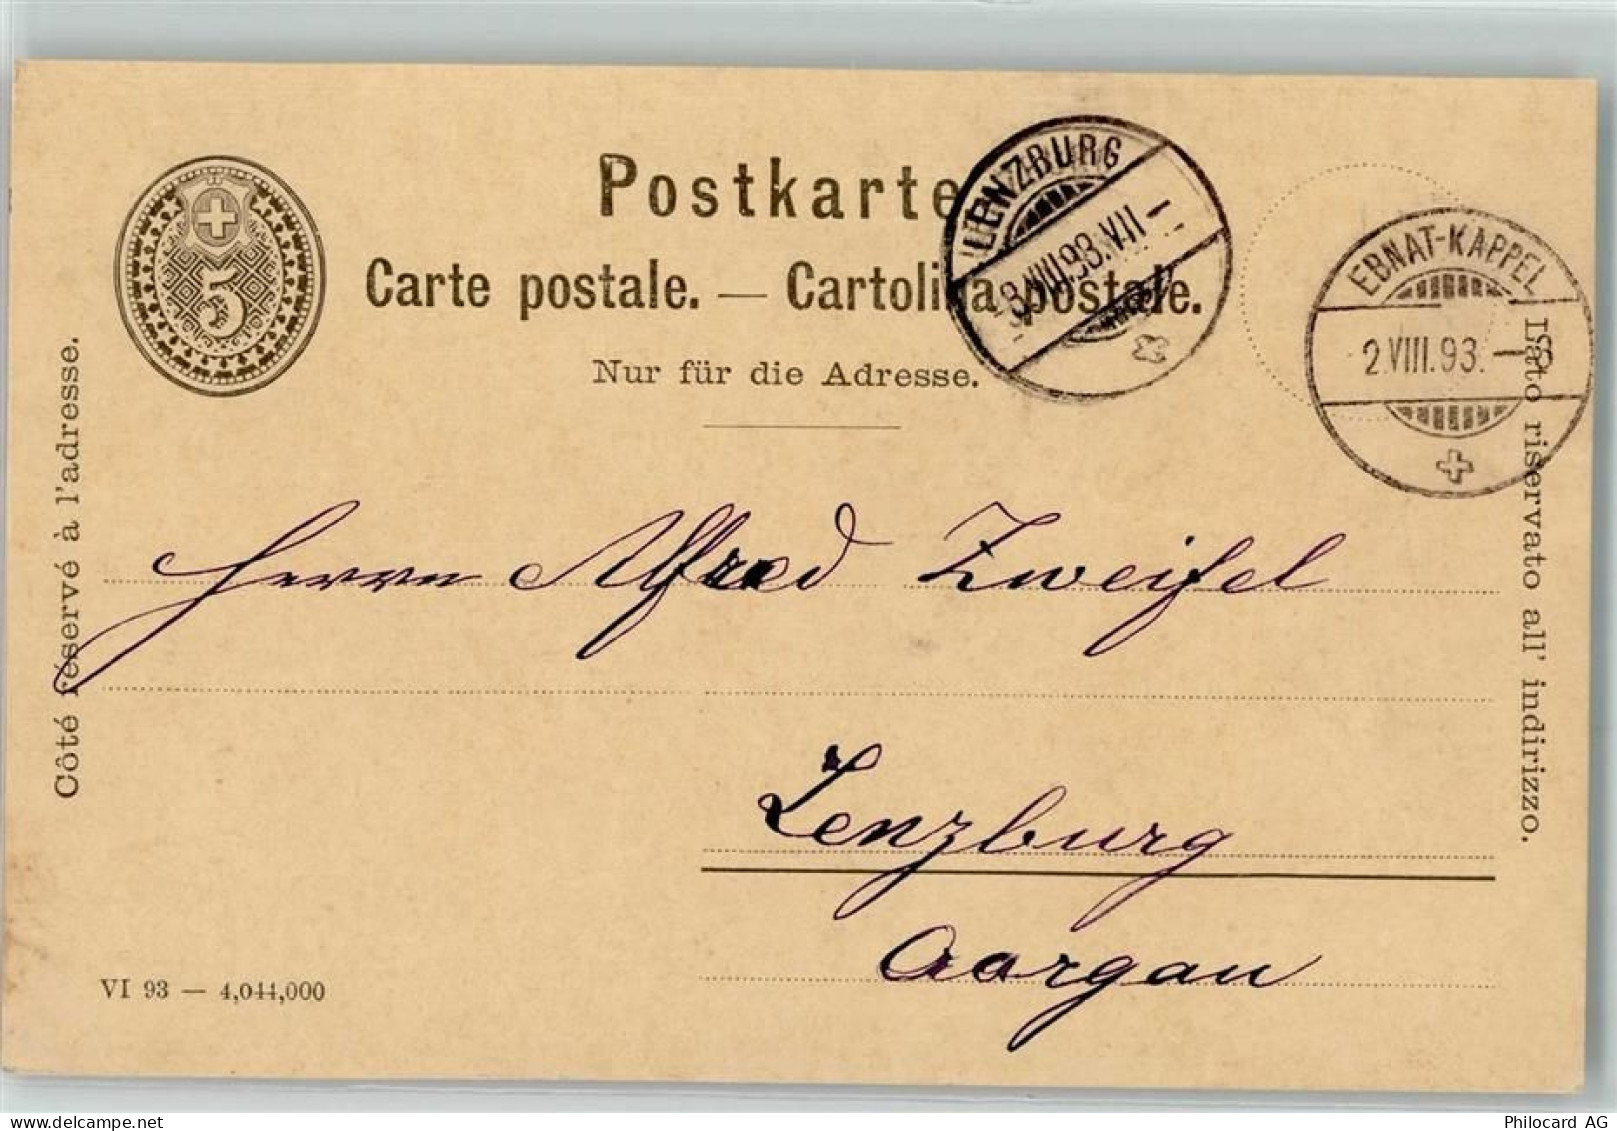 5
Postkarte
Carte postale. — Cartolina postale.
Nur für die Adresse.
Côté réservé à l'adresse.
Lato riservato all' indirizzo.
LENZBURG
EBNAT-KAPPEL
2.VIII.93.
Herrn Alfred Zweifel
Lenzburg
Aargau
VI 93 — 4,044,000
Philocard AG